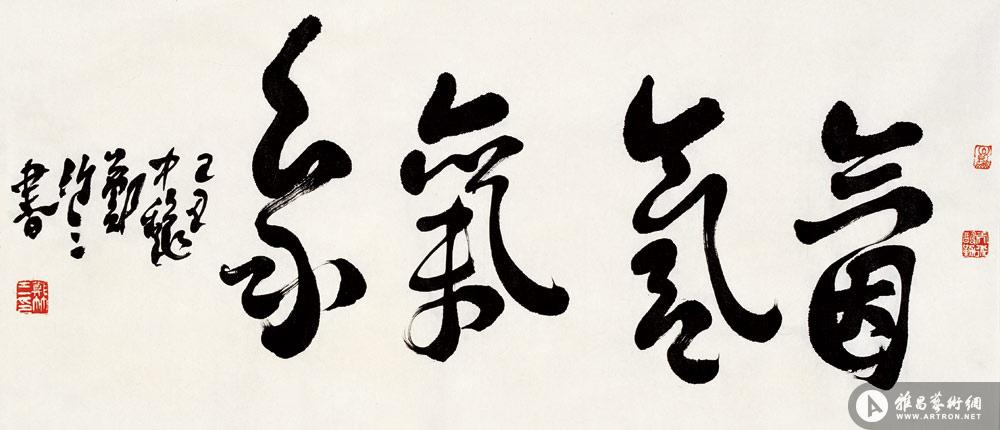 氤氳氣象
己丑
中龝
鄭
竹三
書
雅昌藝術網
WWW.ARTRON.NET